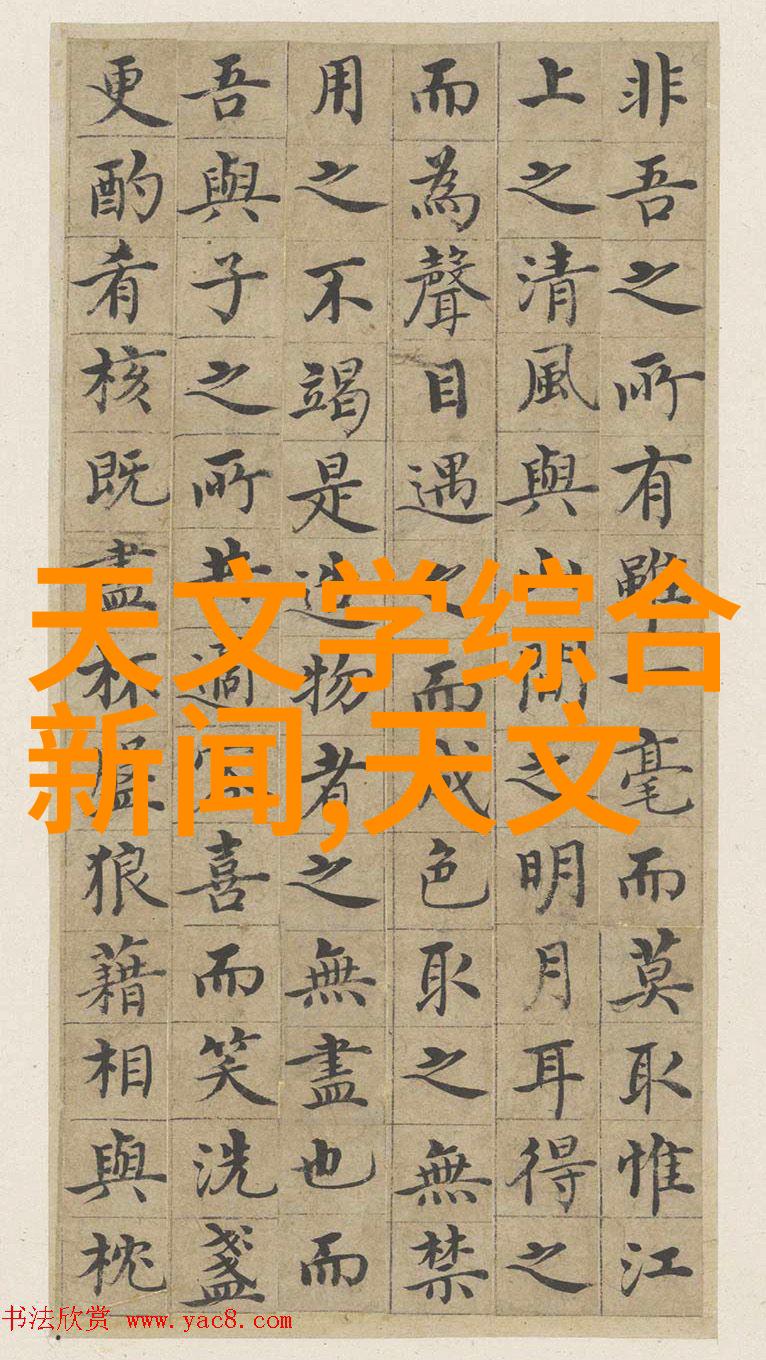 非吾之所有雖一毫而莫取惟江
上之清風與山間之明月耳得之
而為聲目遇之而成色取之無禁
用之不竭是造物者之無盡也而
吾與子之所共適客喜而笑洗盞
更酌肴核既盡杯盤狼藉相與枕
天文学综合
新闻,天文
书法欣赏 www.yac8.com